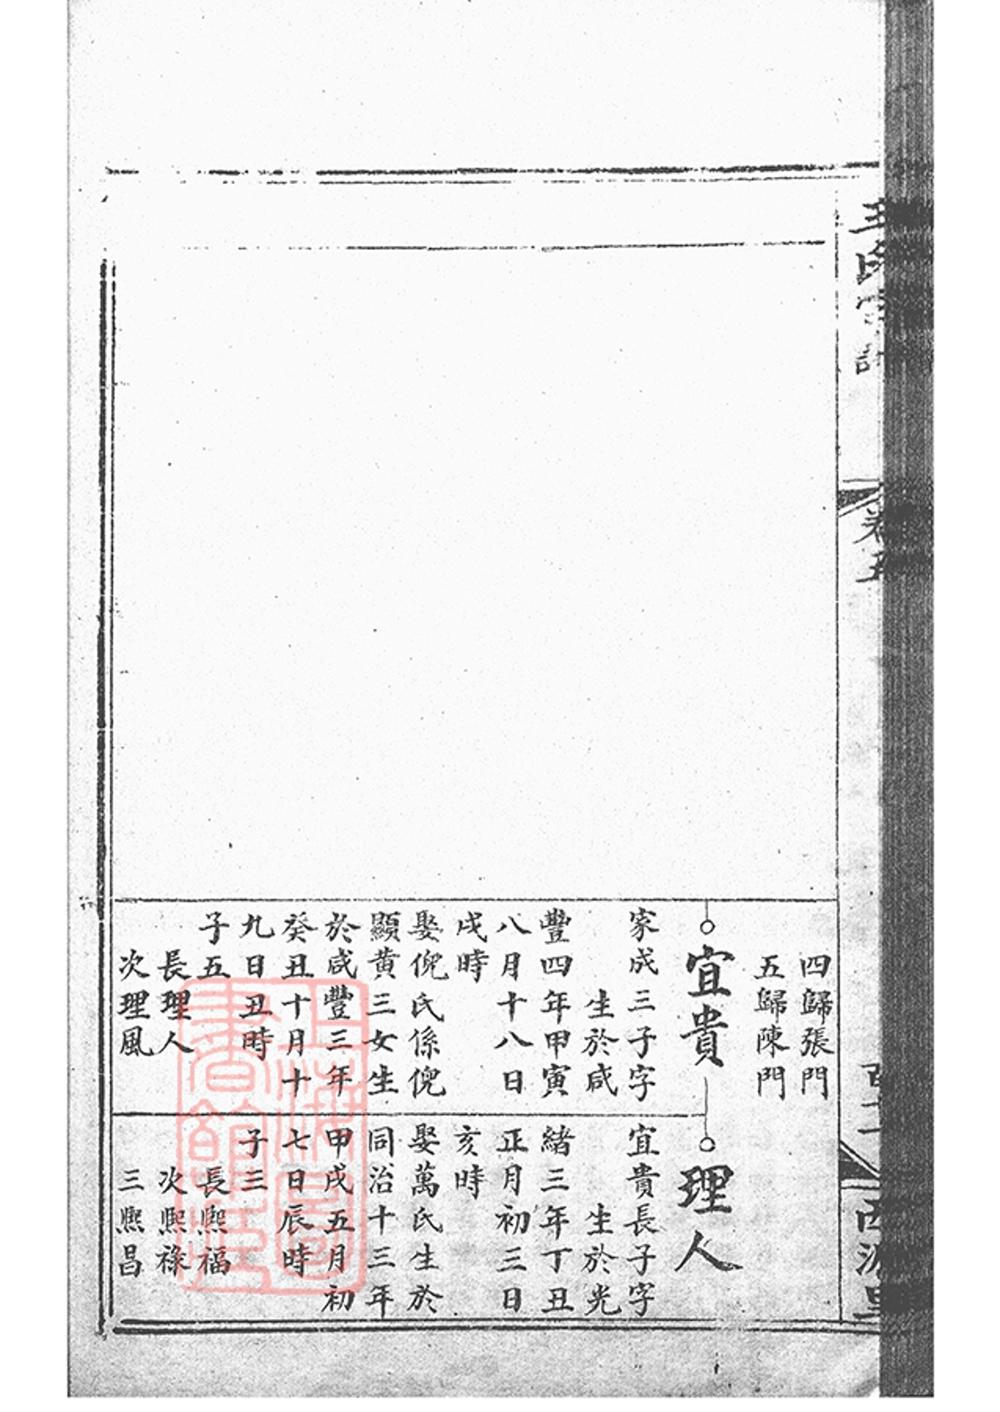 王氏宗譜
卷五
西源里
四歸張門
五歸陳門
宜貴
家成三子字
生於咸
豐四年甲寅
八月十八日
戌時
娶倪氏係倪
顯黄三女生
於咸豐三年
癸丑十月十
九日丑時
子五
長理人
次理風
理人
宜貴長子字
生於光
緒三年丁丑
正月初三日
亥時
娶萬氏生於
同治十三年
甲戌五月初
七日辰時
子三
長熈福
次熈祿
三熈昌
上海圖
書館藏